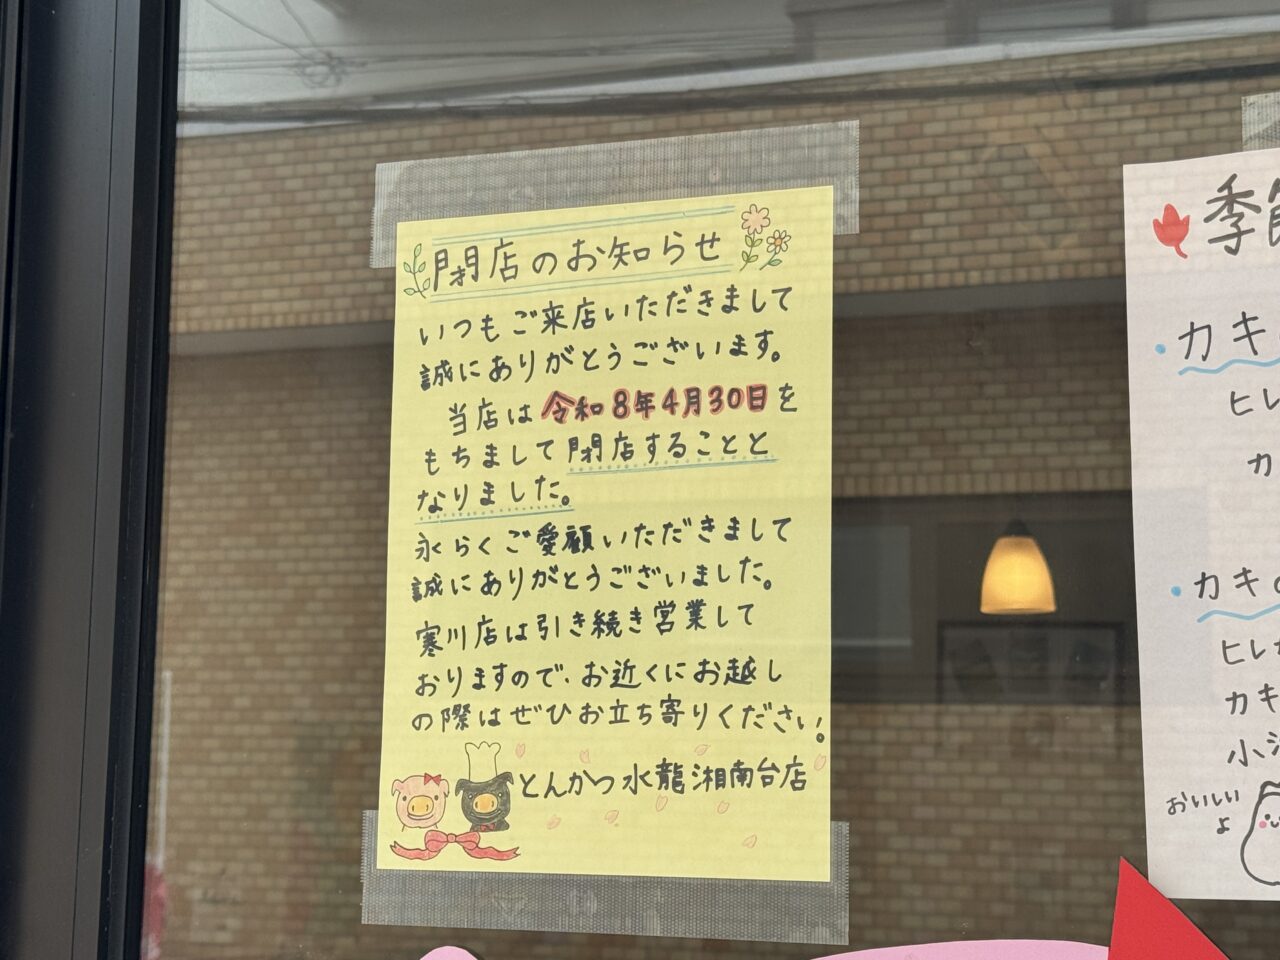 閉店のお知らせ
いつもご来店いただきまして
誠にありがとうございます。
当店は令和8年4月30日を
もちまして閉店することと
なりました。
永らくご愛顧いただきまして
誠にありがとうございました。
寒川店は引き続き営業して
おりますので、お近くにお越し
の際はぜひお立ち寄りください。
とんかつ水龍湘南台店
季節
カキ
ヒレ
カ
カキの
ヒレカ
カキ
小
おいしい
よ